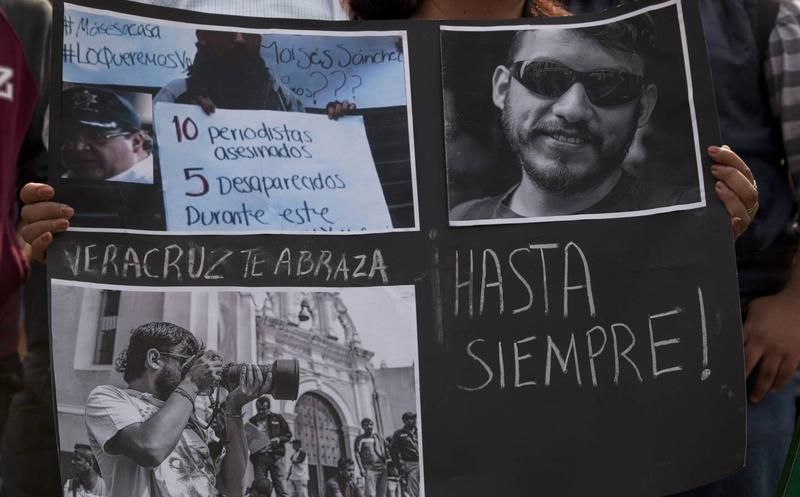 #Moisesacasa
#LoQueremosV
Moisés Sánchez
os???
10 periodistas
asesinados
5 Desaparecidos
Durante este
VERACRUZ TE ABRAZA
HASTA
SIEMPRE!